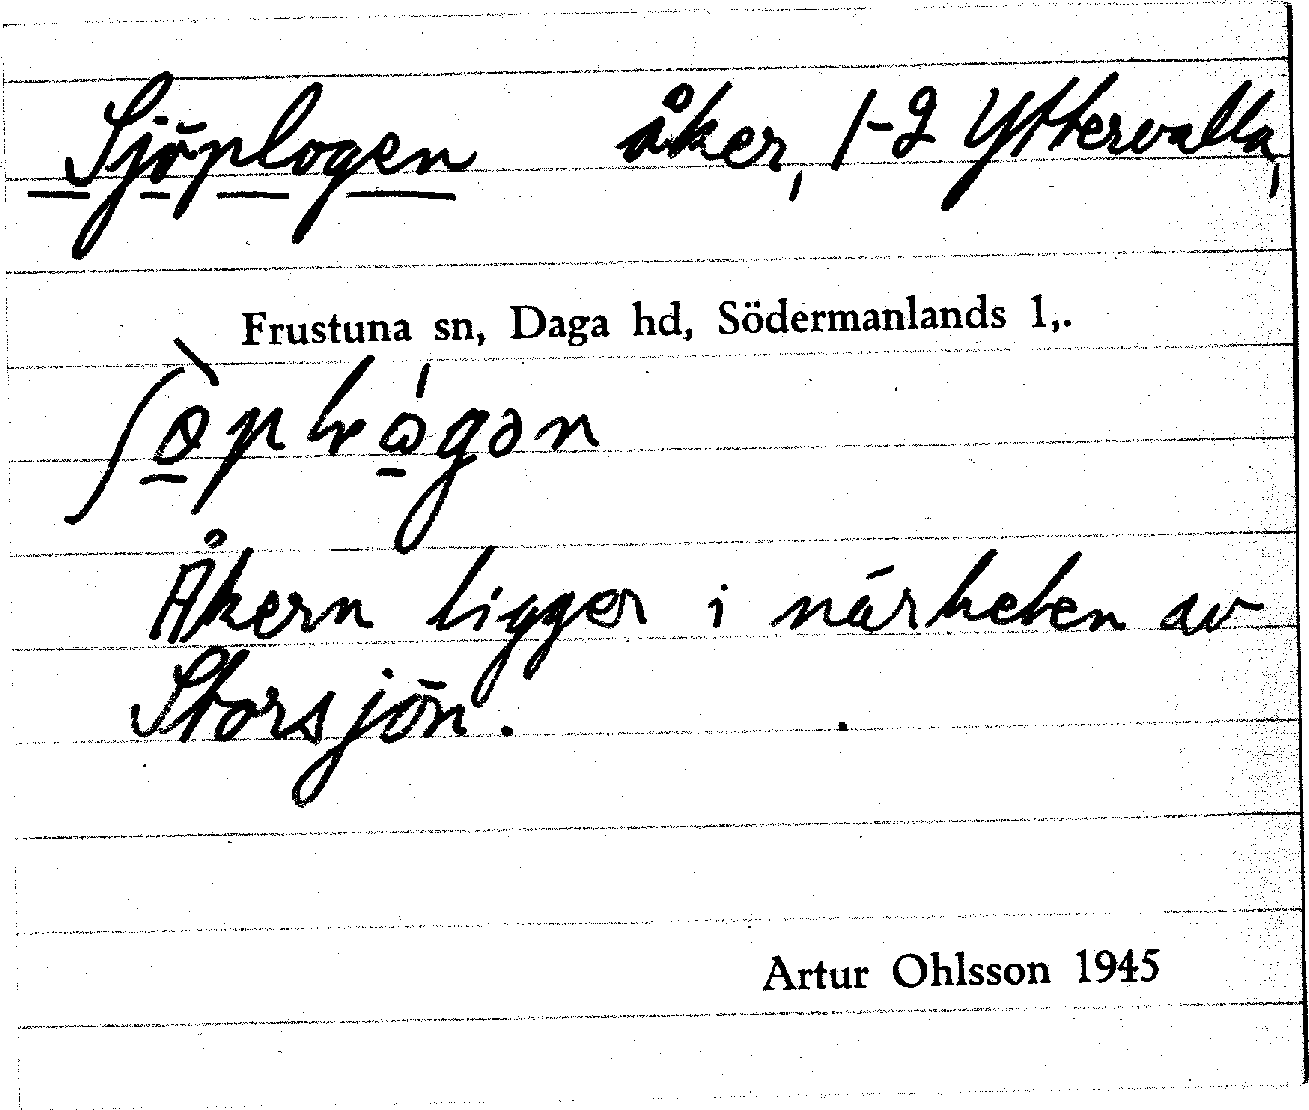 Sjöplogen åker, 1-2 Yttervalla,
Frustuna sn, Daga hd, Södermanlands l,.
Åkern ligger i närheten av
Storsjön.
Artur Ohlsson 1945